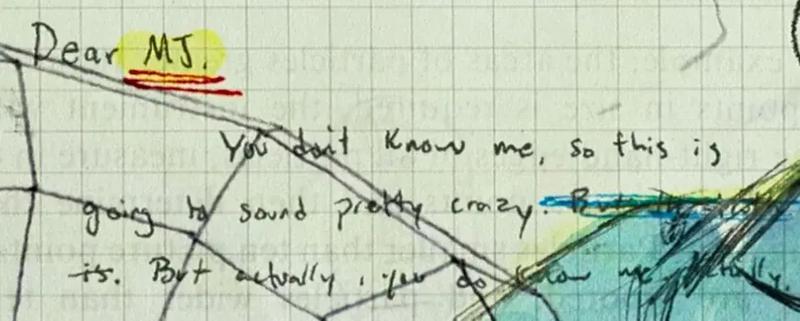 Dear MJ.
You don't know me, so this is
going to sound pretty crazy. But
is. But actually, you do know me, actually.